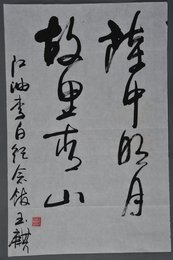 中明月
故里青山
江油李白纪念馆玉麒